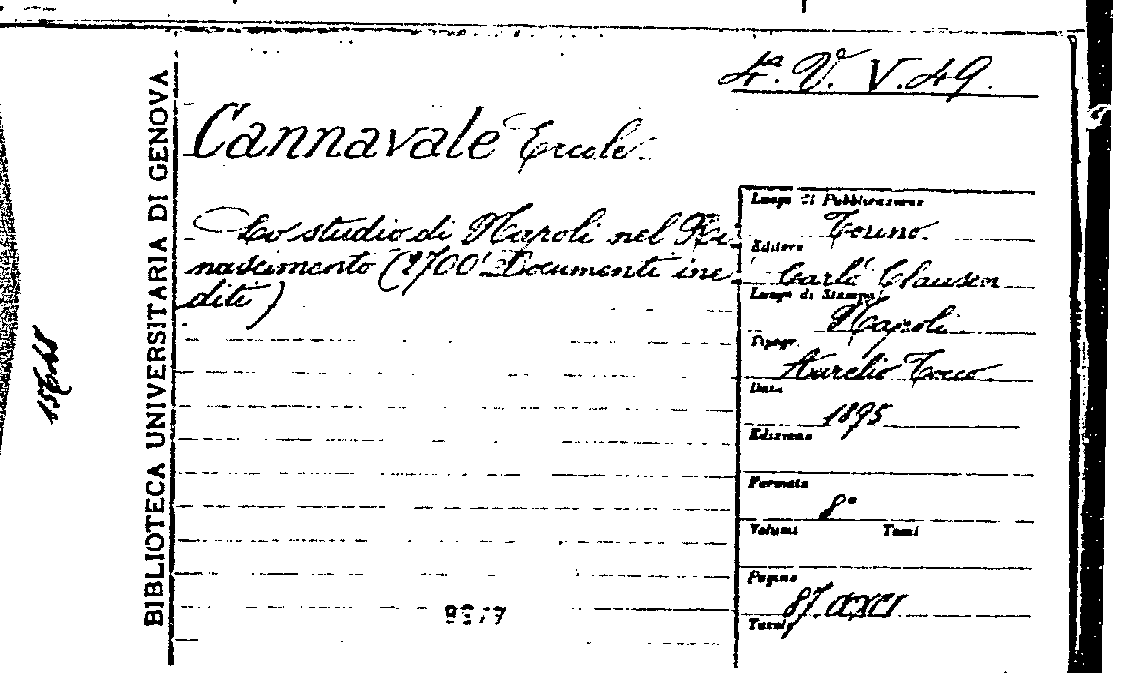 4ª. V. V. 49.
Cannavale Ercole.
Lo studio di Napoli nel Ri-
nascimento (2700 Documenti ine-
diti)
BIBLIOTECA UNIVERSITARIA DI GENOVA
Luogo di Pubblicazione
Torino.
Editore
Carlo Clausen
Luogo di Stampa
Napoli
Tipogr.
Aurelio Tocco
Data
1895
Edizione
Formato
8°
Volumi Tomi
Pagine
87. CCXCI
Tavole